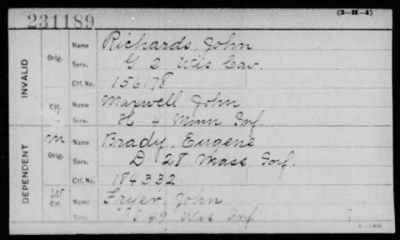 (3-H-4)
231189
INVALID
Orig.
Name Richards, John
Serv. G 2 Wis Cav.
Ctf. No. 156178
Ctf.
Name Maxwell John
Serv. H 4 Minn Inf.
DEPENDENT
M
Orig.
Name Brady, Eugene
Serv. D 28 Mass Inf.
Ctf. No. 184332
W
Ctf.
Name Fryer, John
Serv. 49 Wis Inf